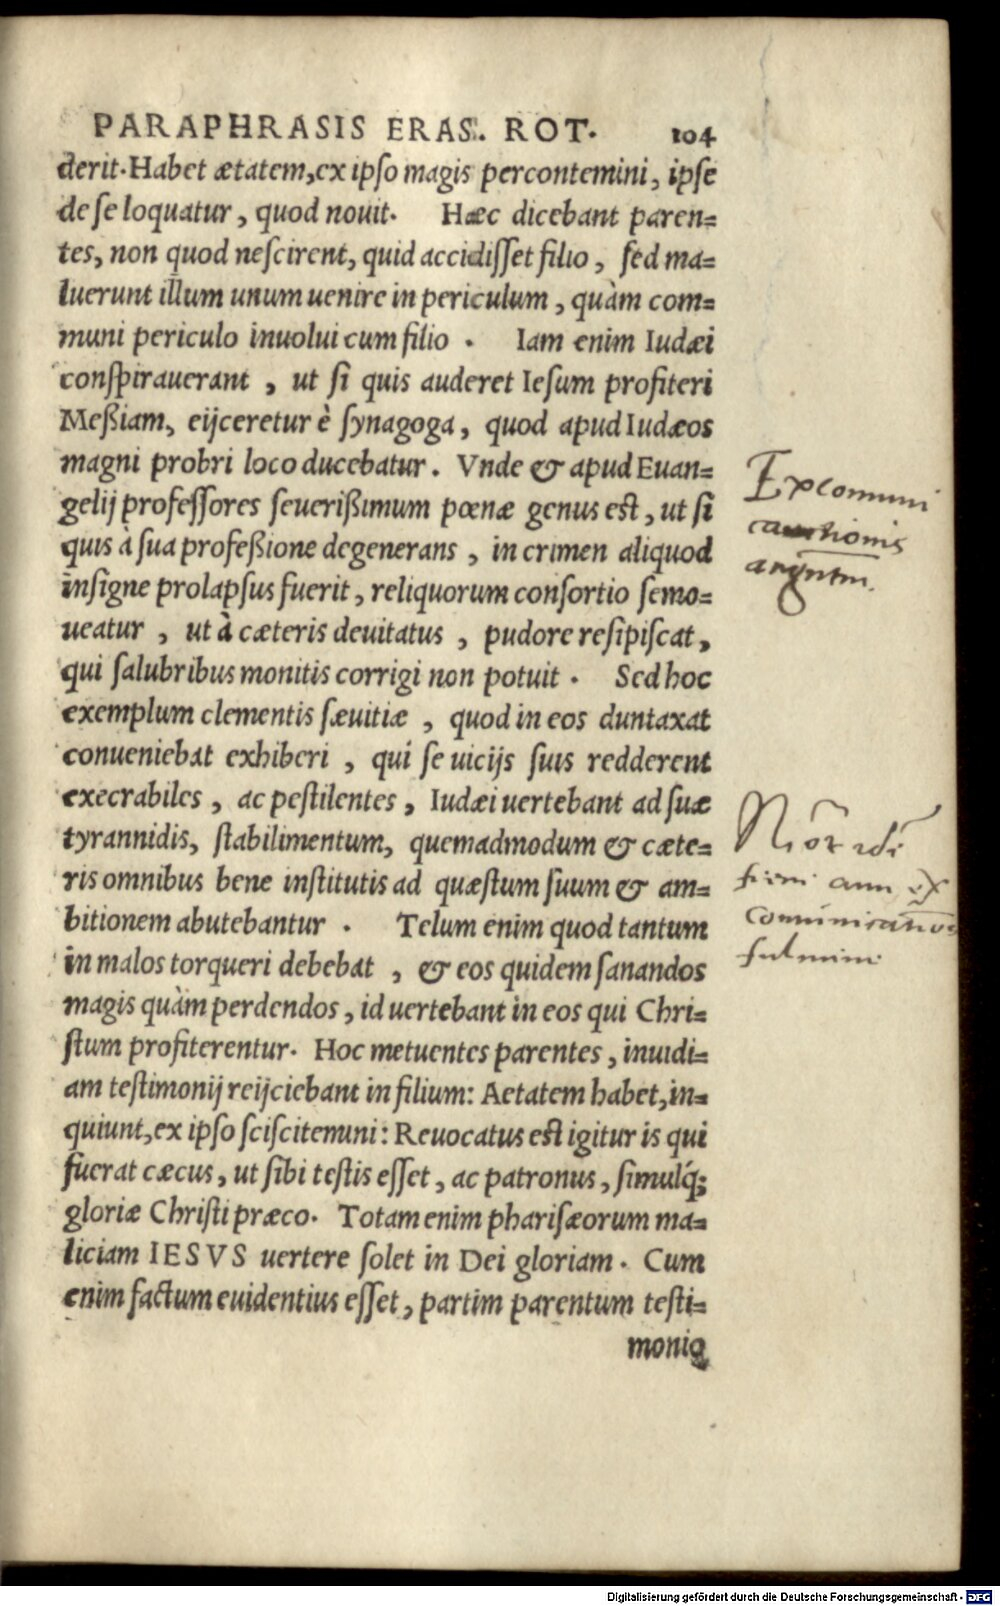 PARAPHRASIS ERAS. ROT. 104
derit. Habet ætatem, ex ipſo magis percontemini, ipſe
de ſe loquatur, quod nouit. Hæc dicebant paren=
tes, non quod neſcirent, quid accidiſſet filio, ſed ma=
luerunt illum unum uenire in periculum, quàm com=
muni periculo inuolui cum filio. Iam enim Iudæi
conſpirauerant, ut ſi quis auderet Ieſum profiteri
Meßiam, eijceretur è ſynagoga, quod apud Iudæos
magni probri loco ducebatur. Vnde & apud Euan=
gelij profeſſores ſeuerißimum pœnæ genus eſt, ut ſi
quis à ſua profeßione degenerans, in crimen aliquod
inſigne prolapſus fuerit, reliquorum conſortio ſemo=
ueatur, ut à cæteris deuitatus, pudore reſipiſcat,
qui ſalubribus monitis corrigi non potuit. Sed hoc
exemplum clementis ſæuitiæ, quod in eos duntaxat
conueniebat exhiberi, qui ſe uicijs ſuis redderent
execrabiles, ac peſtilentes, Iudæi uertebant ad ſuæ
tyrannidis, ſtabilimentum, quemadmodum & cæte=
ris omnibus bene inſtitutis ad quæſtum ſuum & am=
bitionem abutebantur. Telum enim quod tantum
in malos torqueri debebat, & eos quidem ſanandos
magis quàm perdendos, id uertebant in eos qui Chri=
ſtum profiterentur. Hoc metuentes parentes, inuidi=
am teſtimonij reijciebant in filium: Aetatem habet, in=
quiunt, ex ipſo ſciſcitemini: Reuocatus eſt igitur is qui
fuerat cæcus, ut ſibi teſtis eſſet, ac patronus, ſimulq́;
gloriæ Chriſti præco. Totam enim phariſæorum ma=
liciam IESVS uertere ſolet in Dei gloriam. Cum
enim factum euidentius eſſet, partim parentum teſti=
monio
Excomuni
cationis
Comunicationis
fulmini